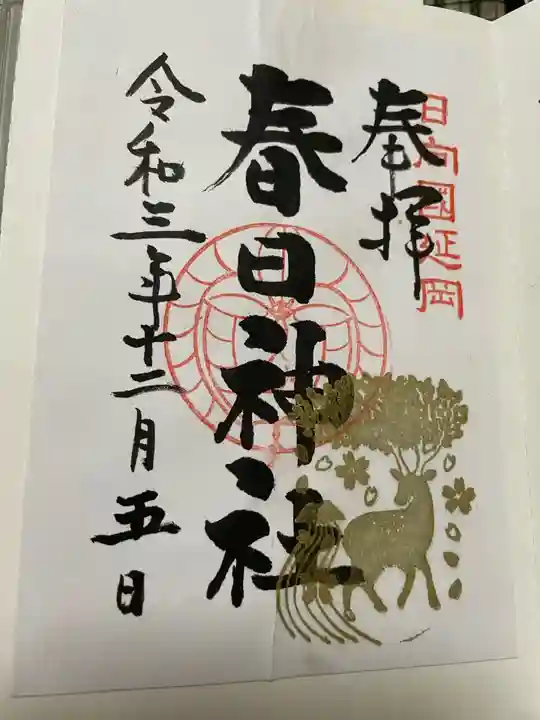 日向国延岡
奉拝
春日神社
令和三年十二月五日